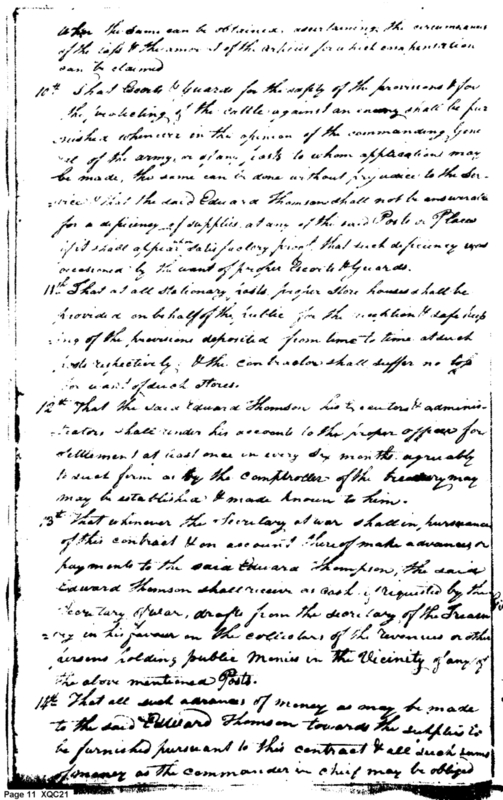 When the same can be obtained, ascertaining the circumstances
of the loss & the amount of the articles for which compensation
can be claimed
10th That Escorts & Guards for the safety of the provisions & for
the protecting of the cattle against an enemy shall be fur
nished whenever in the opinion of the commanding Gene
ral of the army, or of any posts to whom application may
be made, the same can be done without prejudice to the Ser-
vice & that the said Edward Thomson shall not be answerable
for a deficiency of supplies at any of the said Posts or Places
if it shall appear on satisfactory proof, that such deficiency was
occasioned by the want of proper Escorts & Guards.
11th That at all stationary posts, proper Store houses shall be
provided on behalf of the public for the reception & safe keep
ing of the provisions deposited from time to time at such
posts respectively, & the contractor shall suffer no loss
for want of such Stores.
12th That the said Edward Thomson his Executors & adminis-
trators shall render his accounts to the proper officer for
settlement at least once in every six months agreeably
to such form as by the comptroller of the treasury may
may be established & made known to him.
13th That whenever the Secretary at war shall in pursuance
of this contract & on account thereof make advances or
payments to the said Edward Thompson, the said
Edward Thomson shall receive as cash if requested by the
Secretary of war, drafts from the secretary of the Treasu
ry in his favour on the collectors of the Revenues or other
persons holding public Monies in the Vicinity of any of
the above mentioned Posts.
14th That all such advances of money as may be made
to the said Edward Thomson towards the supplies to
be furnished pursuant to this contract & all such sums
of money as the commander in chief may be obliged
Page 11 XQC21